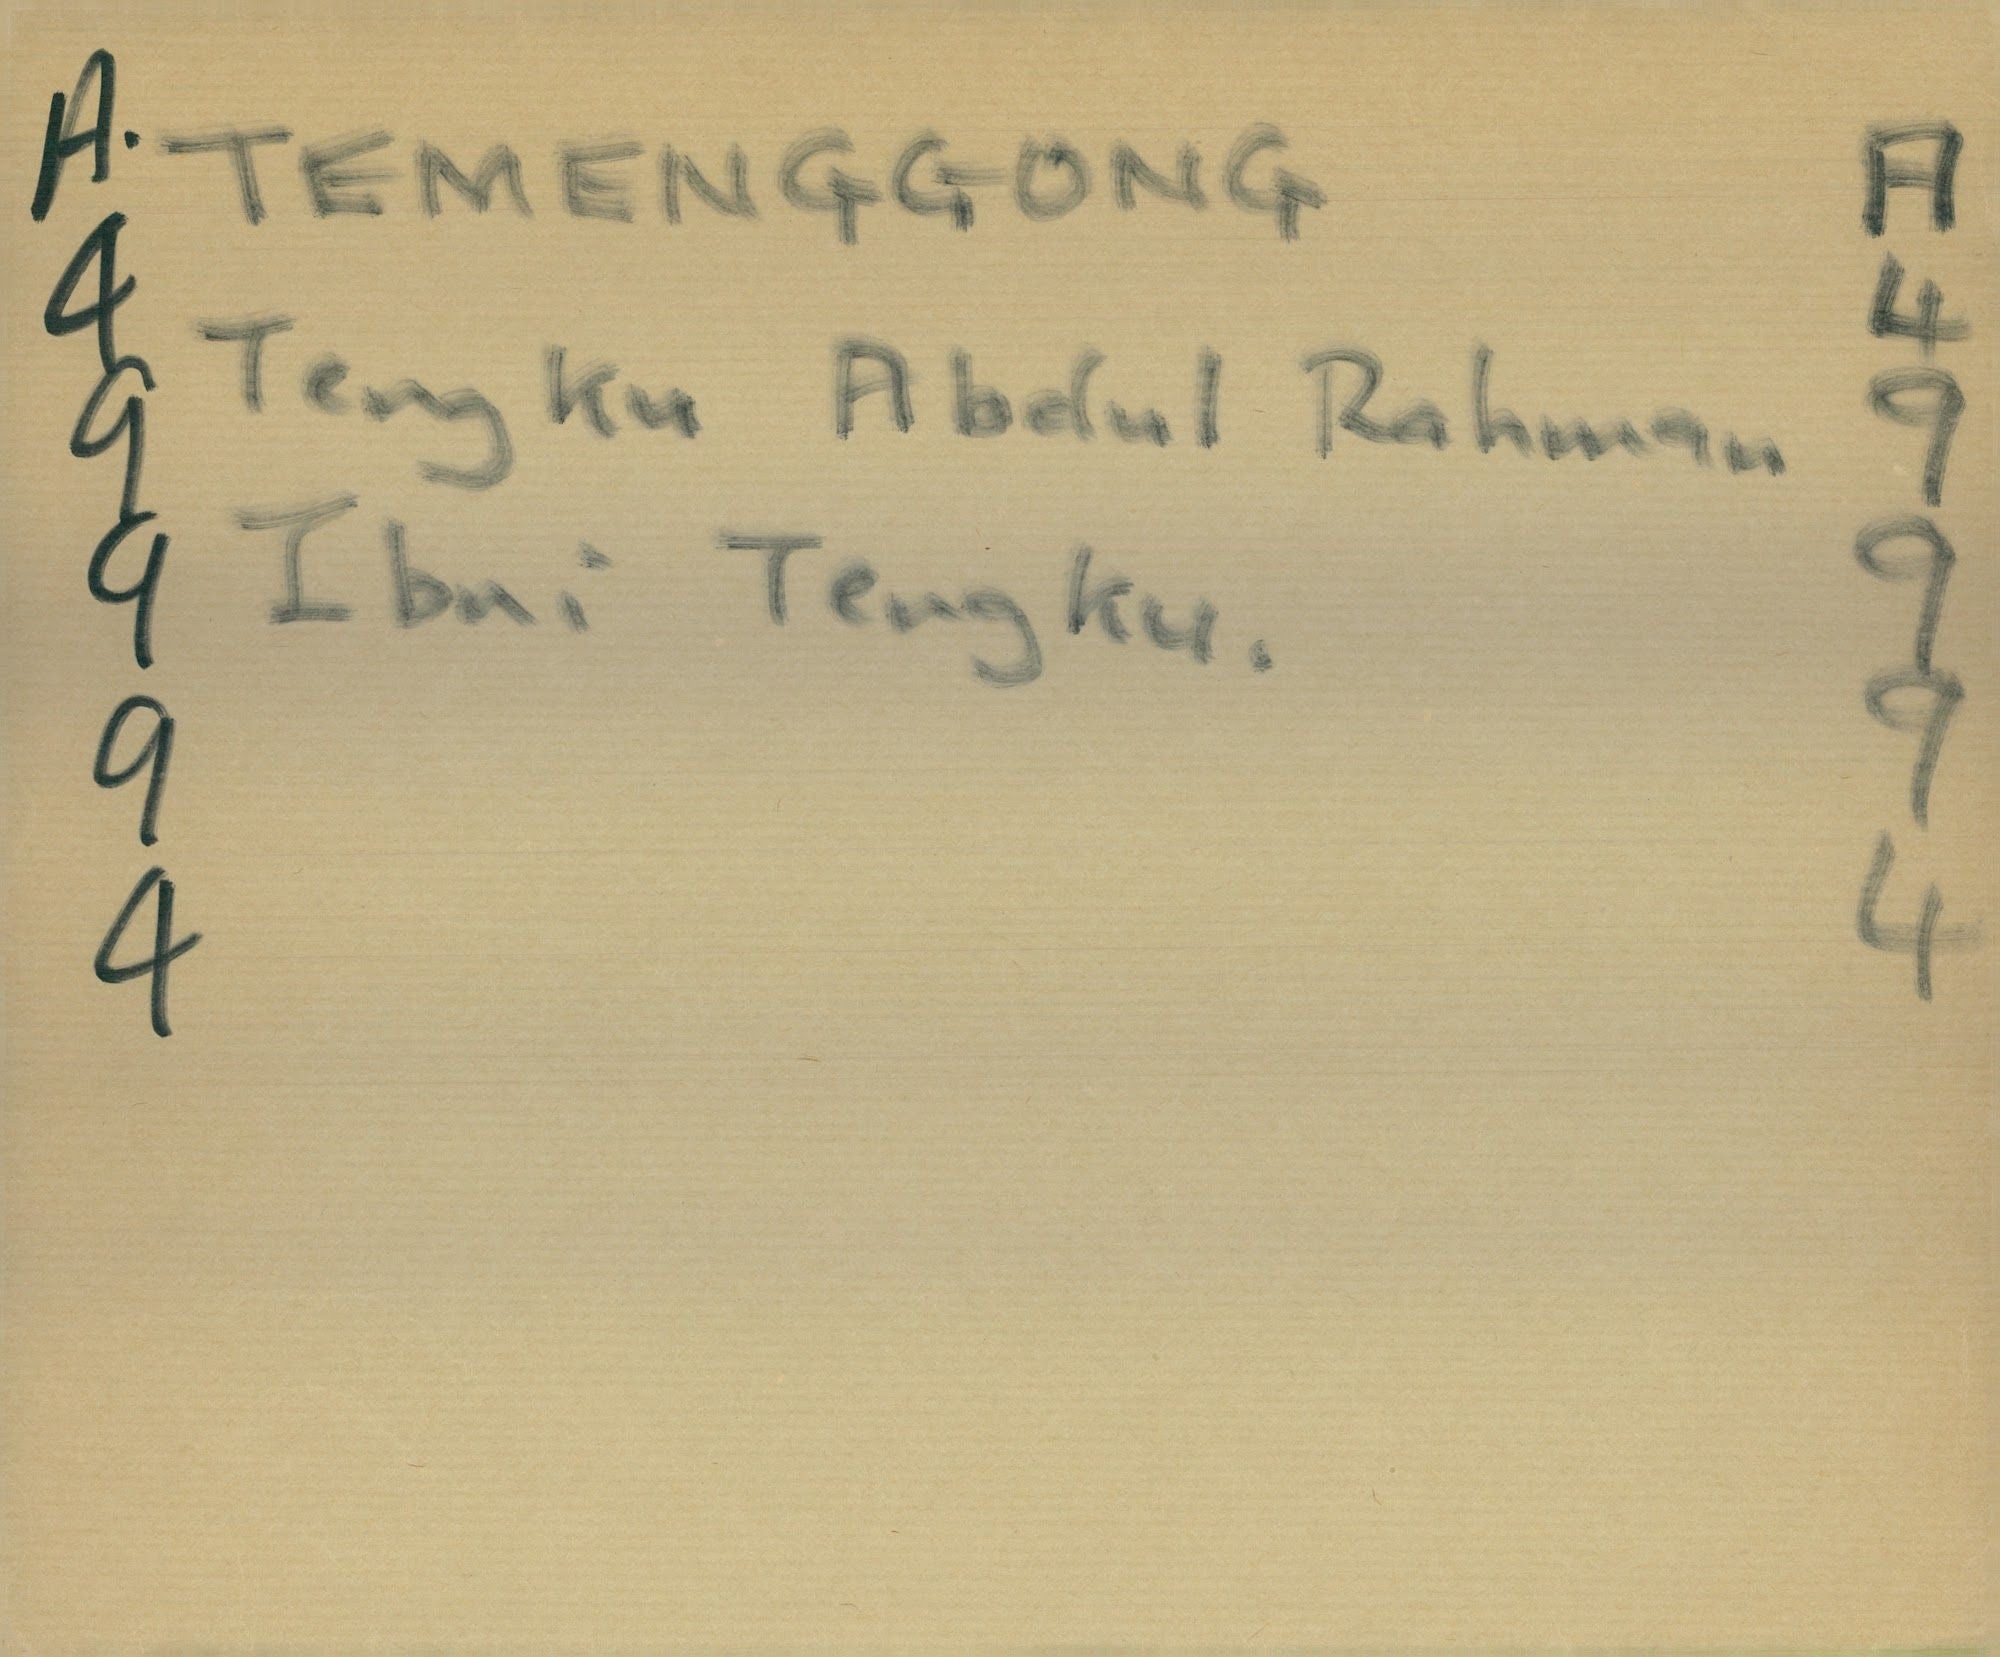 A.
4
9
9
9
4
TEMENGGONG
Tengku Abdul Rahman
Ibni Tengku.
A
4
9
9
9
4